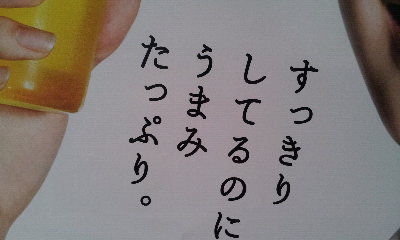 すっきり
してるのに
うまみ
たっぷり。